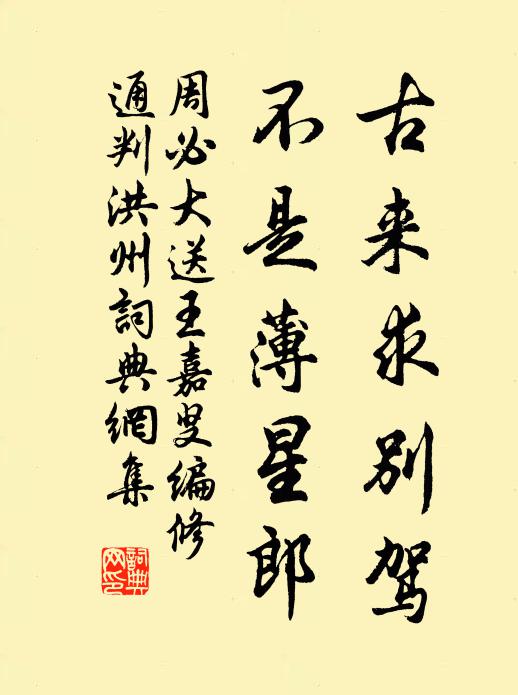 古来求别驾
不是薄星郎
周必大送王嘉叟编修
通判洪州詞典網集
詞典网印